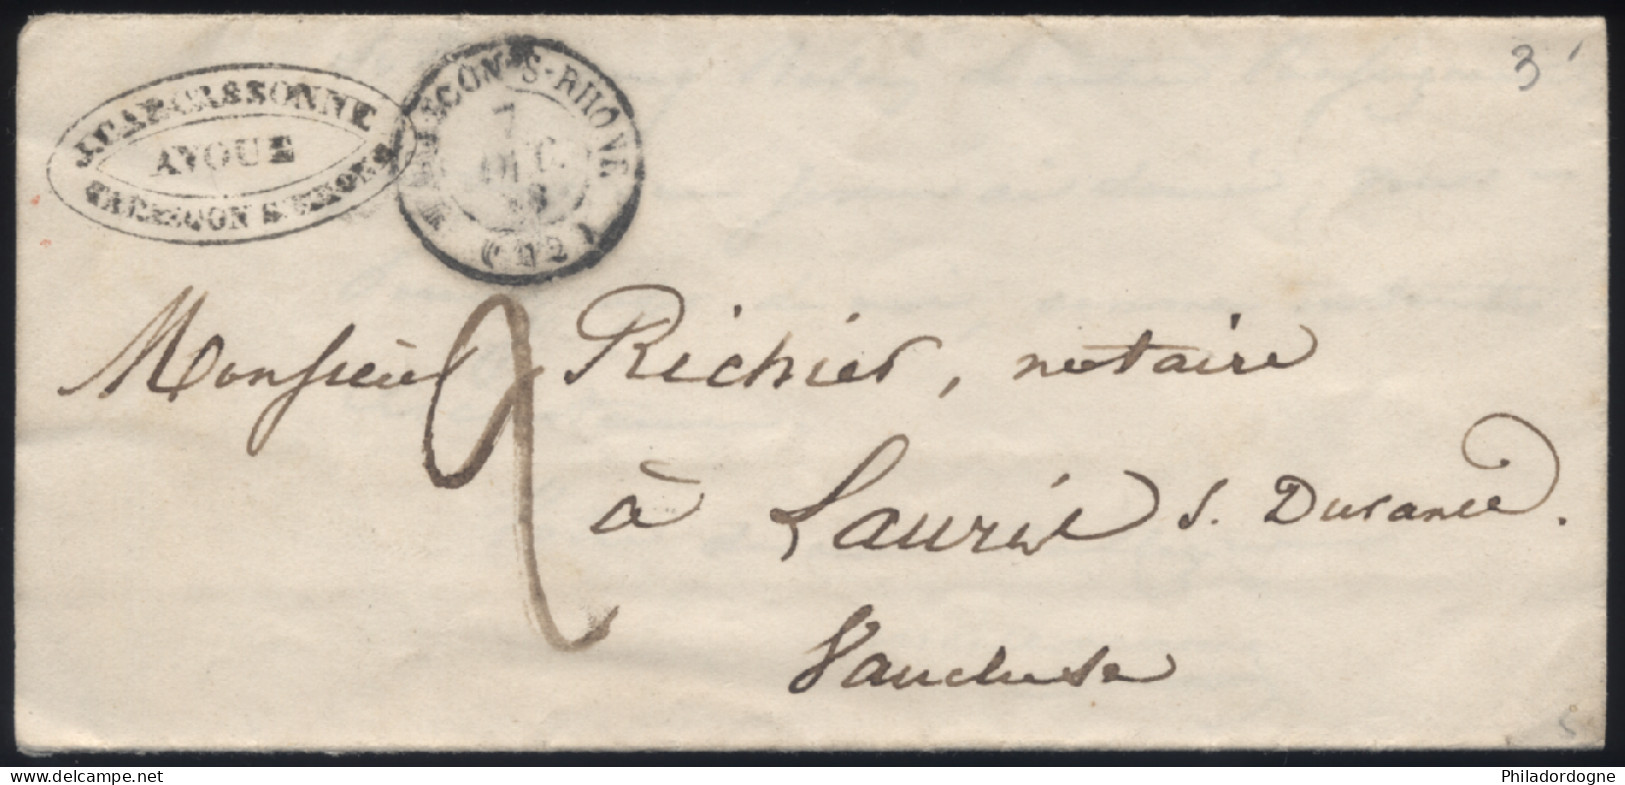 3
J. CARCASSONNE
AVOUÉ
TARASCON S. RHONE
TARASCON-S-RHONE
7
DEC.
(12)
Monsieur Richier, notaire
2
à Lauris s. Durance.
Vaucluse
Philadordogne